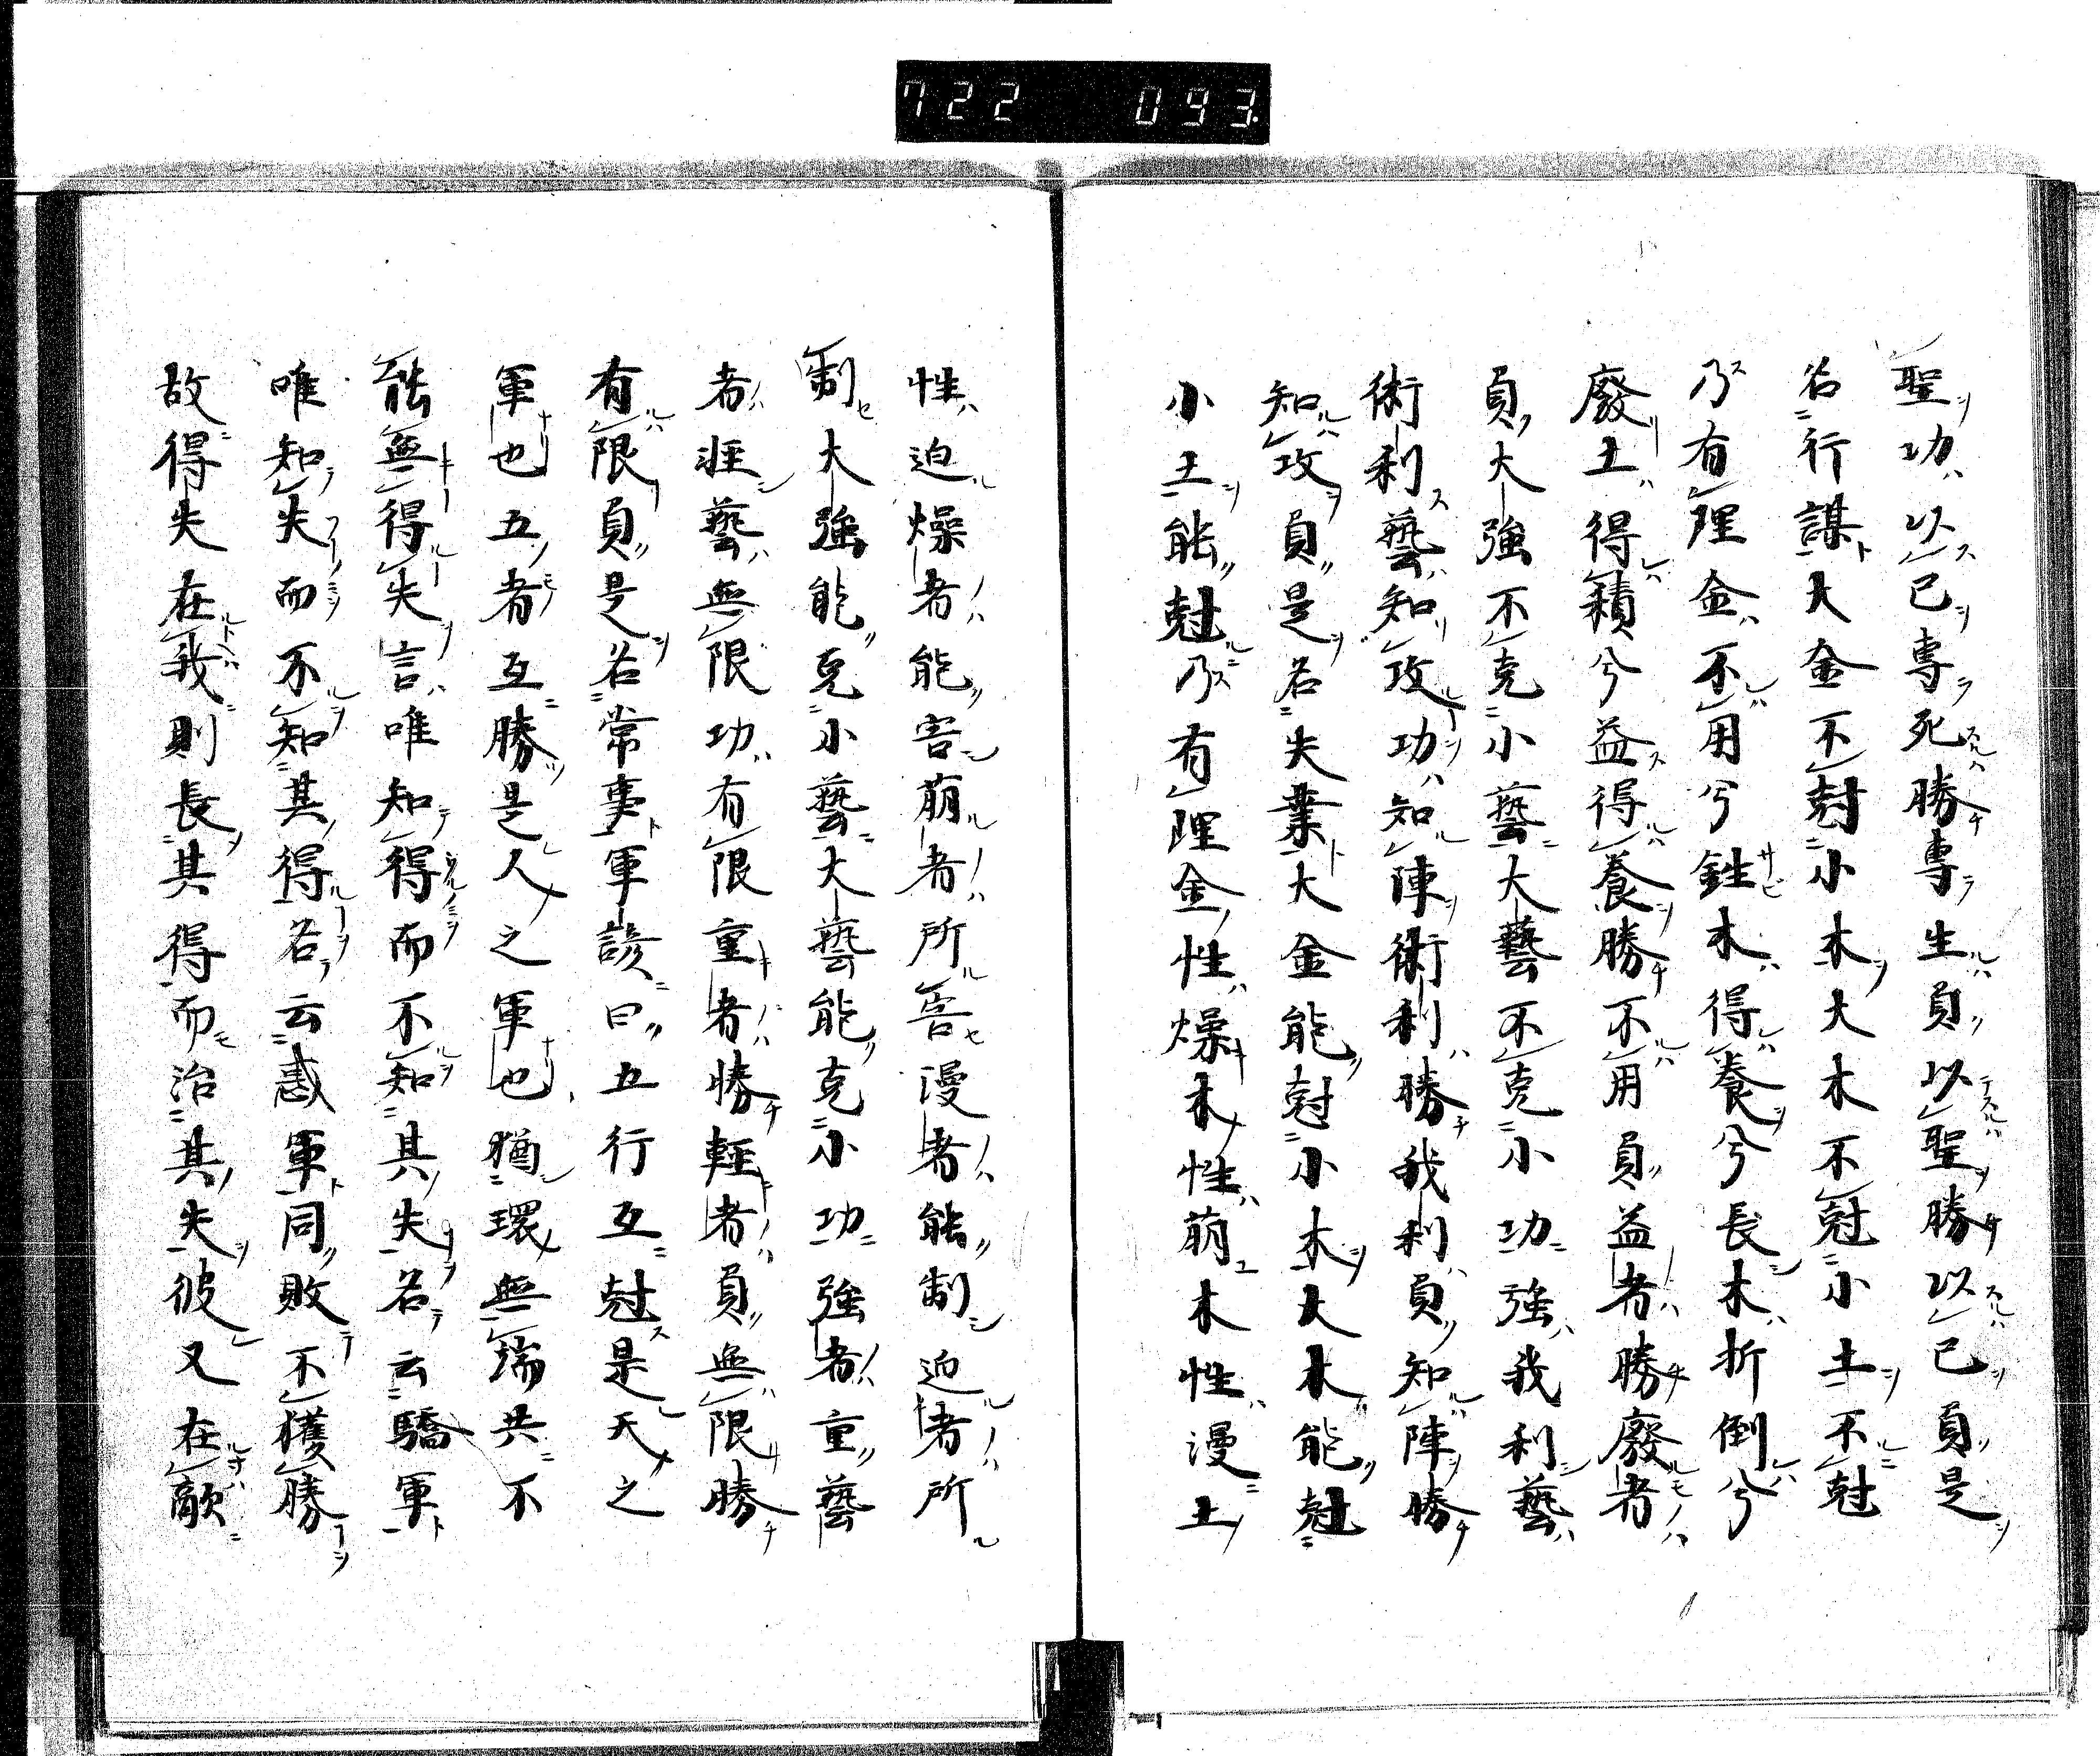 722 093.
聖功以已專死勝專生負以聖勝以已負是
名行謀大金不尅小木大木不尅小土不尅
乃有理金不用兮鉎木得養兮長木折倒兮
廢土得積兮益得養勝不用負益者勝廢者
負大強不克小藝大藝不克小功強我利藝
術利藝知攻功知陣術利勝我利負知陣勝
知攻負是名失業大金能尅小木大木能尅
小土能尅乃有理金性燥木性萠木性漫土
性迫燥者能害萠者所害漫者能制迫者所
制大強能克小藝大藝能克小功強者重藝
者涯藝無限功有限重者勝輕者負無限勝
有限負是名常事軍諺曰五行互尅是天之
軍也五者互勝是人之軍也猶環無端共不
能無得失言唯知得而不知其失名云驕軍
唯知失而不知其得名云惑軍同敗不獲勝
故得失在我則長其得而治其失彼又在敵